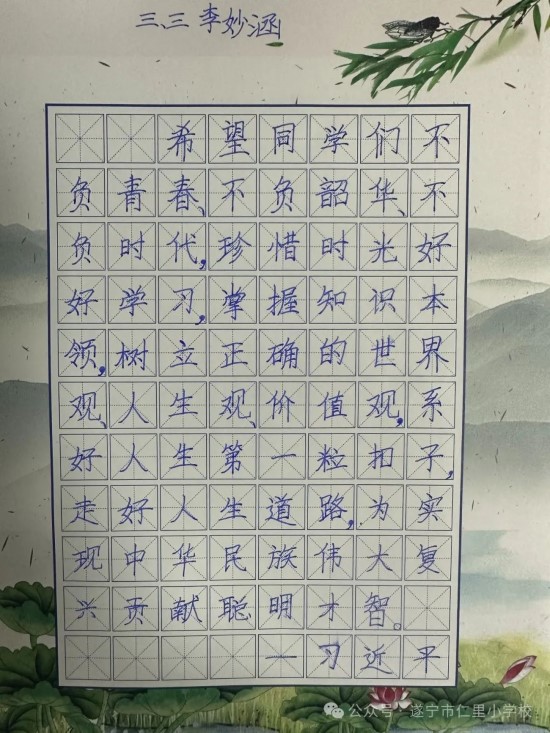 三、三 李妙涵
希望同学们不
负青春、不负韶华、不
负时代,珍惜时光好
好学习,掌握知识本
领,树立正确的世界
观、人生观、价值观,系
好人生第一粒扣子,
走好人生道路,为实
现中华民族伟大复
兴贡献聪明才智。
—习近平
公众号·遂宁市仁里小学校